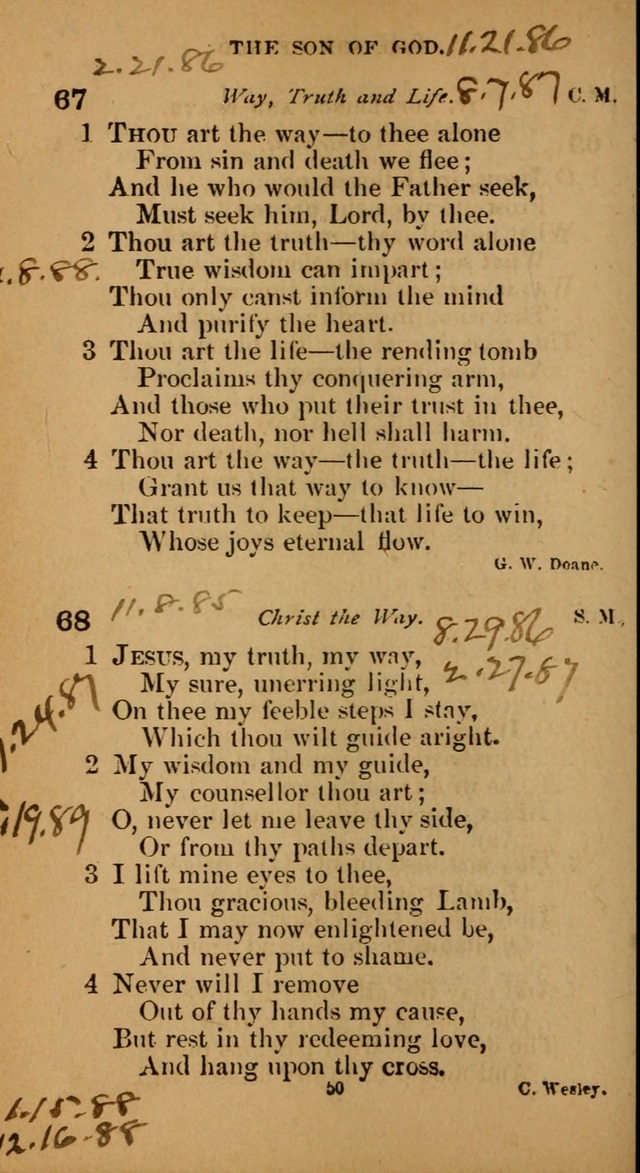 THE SON OF GOD. 11.21.86
2.21.86
67 Way, Truth and Life. 8.7.87 C. M.
1 THOU art the way—to thee alone
From sin and death we flee;
And he who would the Father seek,
Must seek him, Lord, by thee.
2 Thou art the truth—thy word alone
.8.88. True wisdom can impart;
Thou only canst inform the mind
And purify the heart.
3 Thou art the life—the rending tomb
Proclaims thy conquering arm,
And those who put their trust in thee,
Nor death, nor hell shall harm.
4 Thou art the way—the truth—the life;
Grant us that way to know—
That truth to keep—that life to win,
Whose joys eternal flow.
G. W. Doane.
68 11.8.85 Christ the Way. 8.29.86 S. M.
1 JESUS, my truth, my way, 2.27.87
My sure, unerring light,
.24.87 On thee my feeble steps I stay,
Which thou wilt guide aright.
2 My wisdom and my guide,
My counsellor thou art;
19.89 O, never let me leave thy side,
Or from thy paths depart.
3 I lift mine eyes to thee,
Thou gracious, bleeding Lamb,
That I may now enlightened be,
And never put to shame.
4 Never will I remove
Out of thy hands my cause,
But rest in thy redeeming love,
And hang upon thy cross.
50 C. Wesley.
1.15.88
12.16.88